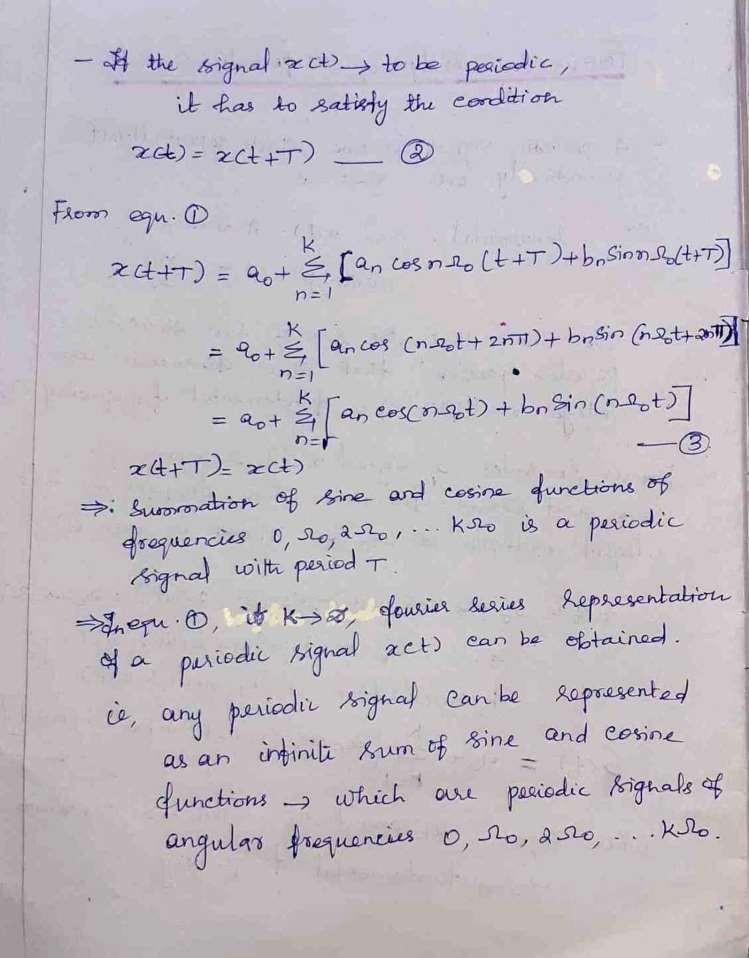 - If the signal x(t) → to be periodic,
it has to satisfy the condition
x(t) = x(t+T) — ②
From equ. ①
x(t+T) = a₀ + K Σ n=1 [an cos nΩ₀ (t+T) + bn Sin nΩ₀(t+T)]
= a₀ + K Σ n=1 [an cos (nΩ₀t + 2nπ) + bn Sin (nΩ₀t + 2nπ)]
= a₀ + K Σ n=1 [an cos(nΩ₀t) + bn Sin (nΩ₀t)]
— ③
x(t+T) = x(t)
⇒: Summation of sine and cosine functions of
frequencies 0, Ω₀, 2Ω₀, ... KΩ₀ is a periodic
signal with period T.
⇒ In equ. ①, if K→∞, fourier series representation
of a periodic signal x(t) can be obtained.
ie, any periodic signal can be represented
as an infinite sum of sine and cosine
functions → which are periodic signals of
angular frequencies 0, Ω₀, 2Ω₀, ... KΩ₀.